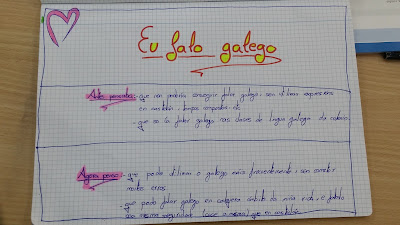 Eu falo galego
Antes pensaba: - que non podería conseguir falar galego, sen utilizar expresións
en castelán, linguas
- que non ía falar galego nas clases de lingua galega
Agora penso: - que podo utilizar o galego máis frecuentemente, sen cometer
moitos erros.
- que podo falar galego en calquera ámbito da miña vida, e fáloo
coa mesma seguridade que en castelán.